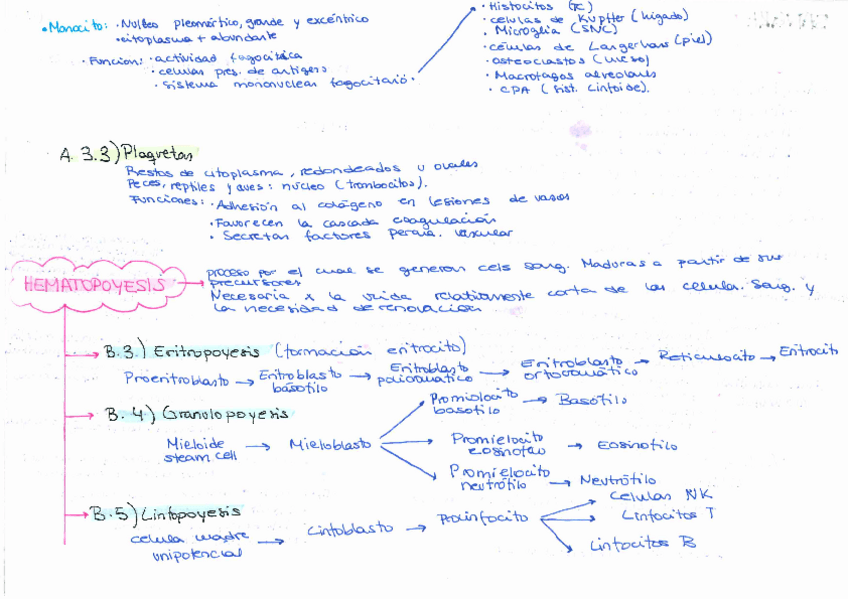 • Monocito: • Núcleo pleomórfico, grande y excéntrico
• citoplasma + abundante
• Funcion: • actividad fagocítica
• celulas pres. de antigens
• Sistema mononuclear fagocitario •
• Histocitos (TC)
• celulas de Kupffer (higado)
• Microglia (SNC)
• células de Langerhans (piel)
• osteoclastos (hueso)
• Macrofagos alveolares
• CPA (sist. linfoide).
A 3.3) Plaquetas
Restos de citoplasma, redondeados u ovales
Peces, reptiles y aves: núcleo (trombocitos).
Funciones: • Adhesión al colágeno en lesiones de vasos
• Favorecen la cascada coagulación
• Secretan factores vascular
HEMATOPOYESIS
proceso por el cual se generan cels sang. Maduras a partir de sus
precursores
Necesaria x la vida relativamente corta de las celula. Sang. y
la necesidad de renovación
B.3.) Eritropoyesis (formación eritrocito)
Proeritroblasto → Eritroblasto basófilo → Eritroblasto policromático → Eritroblasto ortocromático → Reticulocito → Eritrocit
B.4) Granulopoyesis
Mieloide steam cell → Mieloblasto
Promielocito basofilo → Basófilo
Promielocito eosinofilo → Eosinofilo
Promielocito neutrófilo → Neutrófilo
B.5) Linfopoyesis
celula madre unipotencial → Linfoblasto → Prolinfocito
Celulas NK
Linfocitos T
Linfocitos B